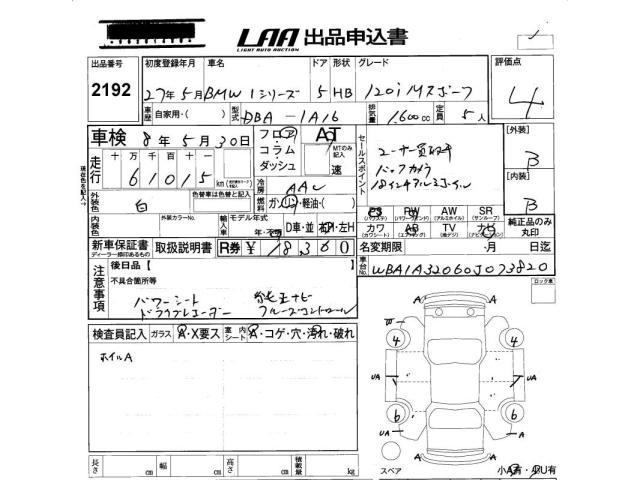 LAA 出品申込書
LIGHT AUTO AUCTION
出品番号 初度登録年月 車名 ドア 形状 グレード 評価点
2192 27年5月 BMW 1シリーズ 5 HB 120i Mスポーツ 4
車歴 自家用・( ) 型式 DBA-1A16 排気量 1,600cc 定員 5人
車検 8年5月30日 フロア コラム ダッシュ AT MTのみ記入 速
セールスポイント
ユーザー買取車
バックカメラ
18インチアルミホイール
[外装] B
[内装] B
走行 十万 千 百 十 一
6 1 0 1 5 km
冷房 AAC
外装色 白 色替車は色替と記入 燃料 ガソリン・軽油・( )
PS PW AW SR
(パワステ) (パワーウィンド) (アルミホイル) (サンルーフ)
カワ AB TV ナビ
(カワシート) (エアバッグ) (地デジ)
純正品のみ丸印
内装色 外装カラーNo. 輸入車 モデル年式 年・不明 D車・並 右H・左H
新車保証書 取扱説明書 R券 ¥ 18,300 名変期限 ・月 日迄
ディーラー捺印あるもの
車台No. WBA1A32060J073820
注意事項 後日品【 】
不具合箇所等
パワーシート 純正ナビ
ドライブレコーダー クルーズコントロール
ロック車
検査員記入 ガラス A・X要ス 室内シート A・コゲ・穴・汚れ・破れ
ホイルA
W A
4 4
UA UA
6 6
UA A
A A
長さ cm 幅 cm 高さ cm 積載量 kg
スペア